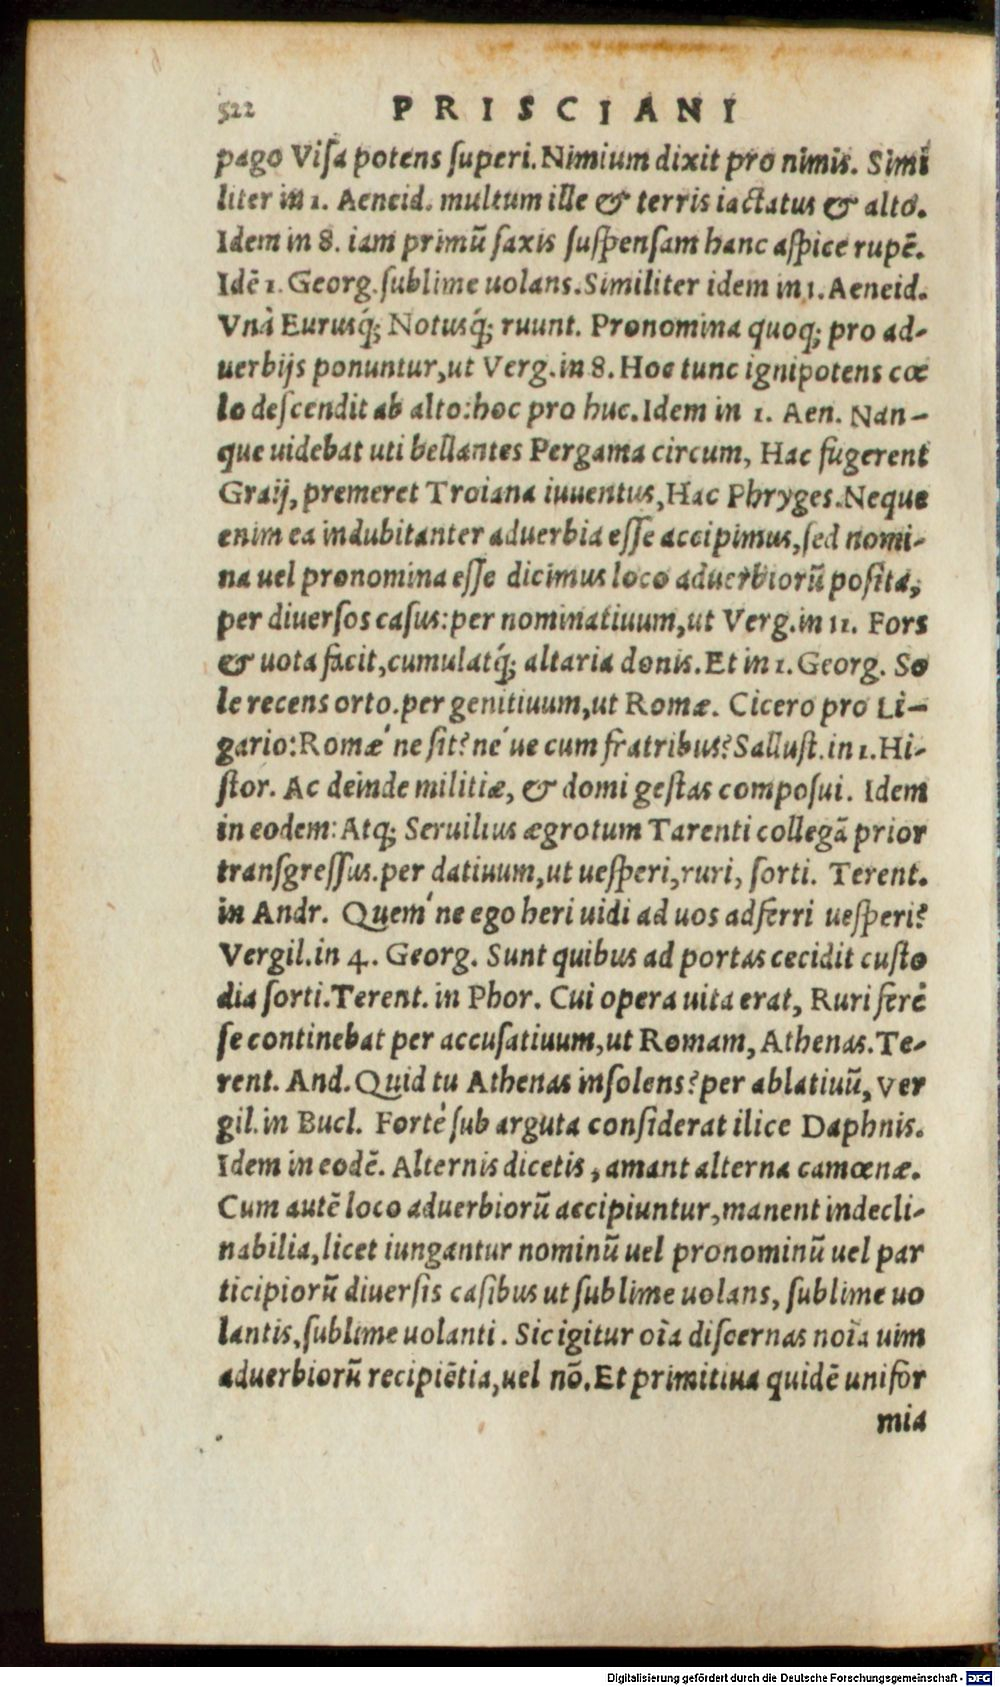 522 PRISCIANI
pago Viſa potens ſuperi. Nimium dixit pro nimis. Simi
liter in 1. Aeneid. multum ille & terris iactatus & alto.
Idem in 8. iam primū ſaxis ſuſpenſam hanc aſpice rupē.
Idē 1. Georg. ſublime uolans. Similiter idem in 1. Aeneid.
Vnà Eurusq́; Notusq́; ruunt. Pronomina quoq; pro ad-
uerbijs ponuntur, ut Verg. in 8. Hoc tunc ignipotens cœ
lo deſcendit ab alto: hoc pro huc. Idem in 1. Aen. Nan-
que uidebat uti bellantes Pergama circum, Hac fugerent
Graij, premeret Troiana iuuentus, Hac Phryges. Neque
enim ea indubitanter aduerbia eſſe accipimus, ſed nomi-
na uel pronomina eſſe dicimus loco aduerbiorū poſita,
per diuerſos caſus: per nominatiuum, ut Verg. in 11. Fors
& uota facit, cumulatq́; altaria donis. Et in 1. Georg. So
le recens orto. per genitiuum, ut Romæ. Cicero pro Li-
gario: Romæ' ne ſit? ne' ue cum fratribus? Salluſt. in 1. Hi-
ſtor. Ac deinde militiæ, & domi geſtas compoſui. Idem
in eodem: Atq; Seruilius ægrotum Tarenti collegā prior
tranſgreſſus. per datiuum, ut ueſperi, ruri, ſorti. Terent.
in Andr. Quem' ne ego heri uidi ad uos adferri ueſperi?
Vergil. in 4. Georg. Sunt quibus ad portas cecidit cuſto
dia ſorti. Terent. in Phor. Cui opera uita erat, Ruri ferè
ſe continebat per accuſatiuum, ut Romam, Athenas. Te-
rent. And. Quid tu Athenas inſolens? per ablatiuū, Ver
gil. in Bucl. Fortè ſub arguta conſiderat ilice Daphnis.
Idem in eodē. Alternis dicetis, amant alterna camœnæ.
Cum autē loco aduerbiorū accipiuntur, manent indecli-
nabilia, licet iungantur nominū uel pronominū uel par
ticipiorū diuerſis caſibus ut ſublime uolans, ſublime uo
lantis, ſublime uolanti. Sic igitur oīa diſcernas noīa uim
aduerbiorū recipiētia, uel nō. Et primitiua quidē unifor
mia
Digitalisierung gefördert durch die Deutsche Forschungsgemeinschaft - DFG